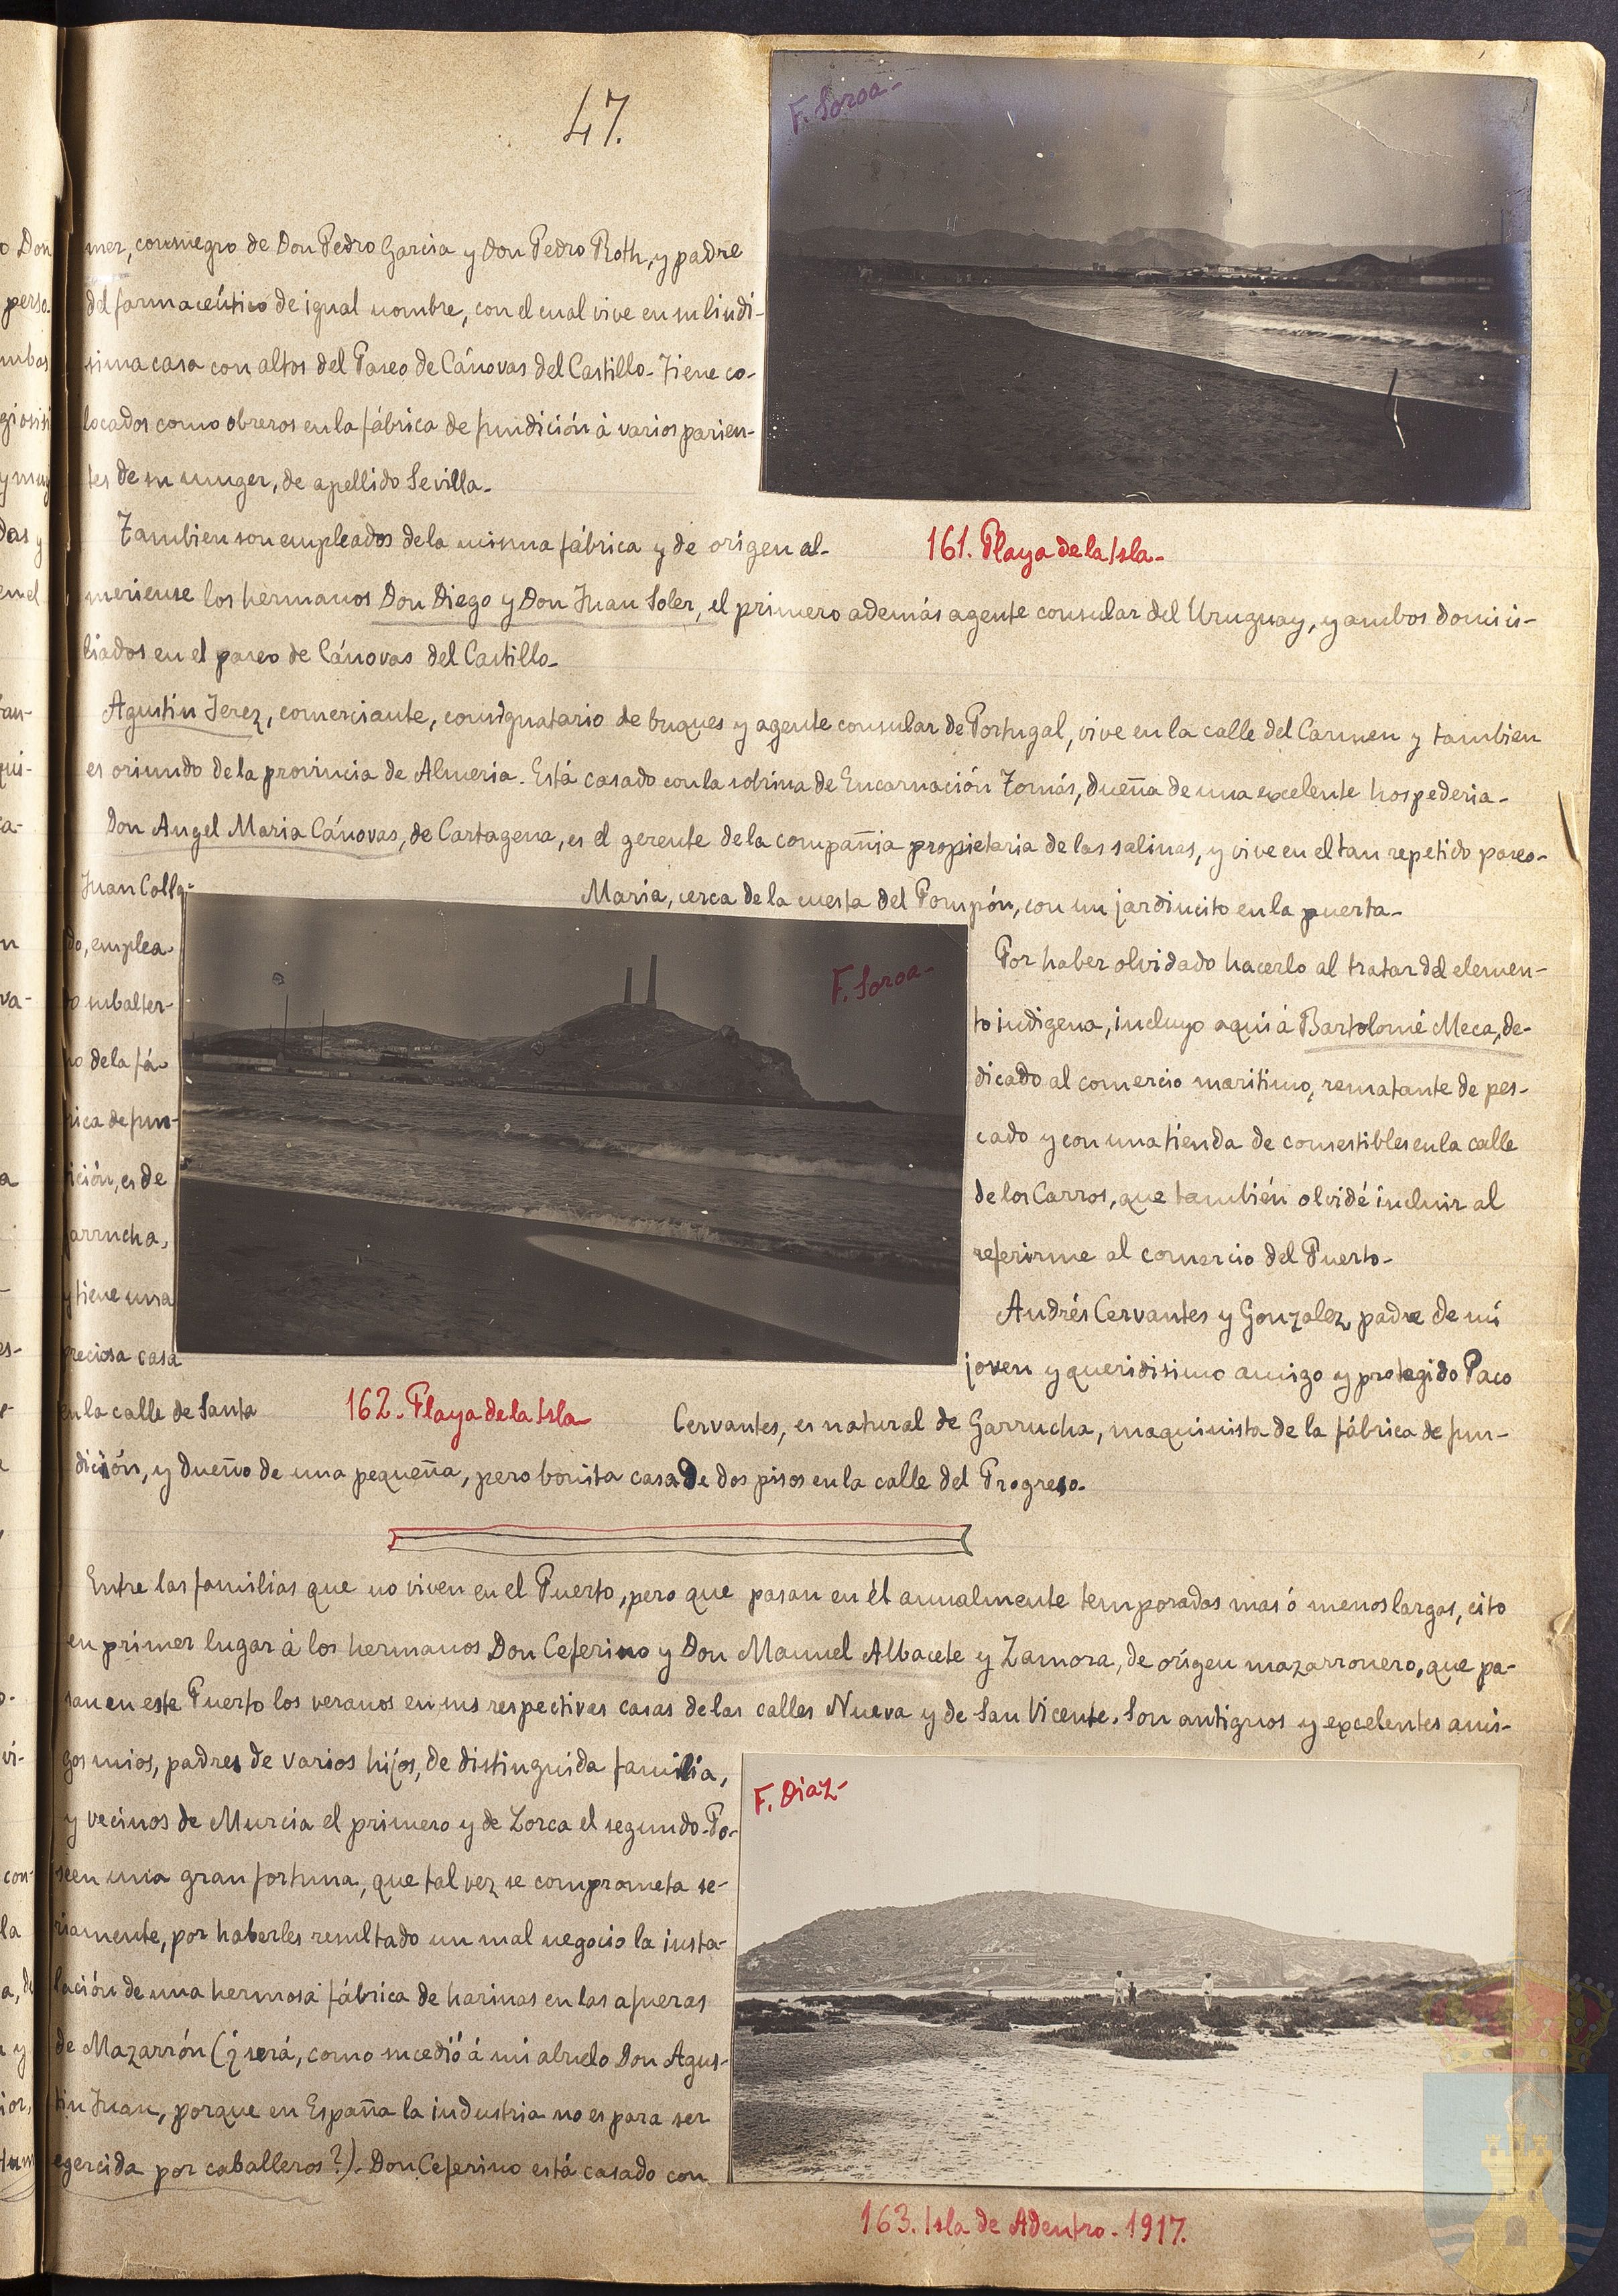 47.
F. Soroa-
mer, consuegro de Don Pedro Garcia y Don Pedro Roth, y padre
del farmacéutico de igual nombre, con el cual vive en su lindi-
sima casa con altos del Paseo de Cánovas del Castillo- Tiene co-
locados como obreros en la fábrica de fundición á varios parien-
tes de su muger, de apellido Sevilla-
Tambien son empleados de la misma fábrica y de orígen al-
161. Playa de la Isla-
meriense los hermanos Don Diego y Don Juan Soler, el primero además agente consular del Uruguay, y ambos domici-
liados en el paseo de Cánovas del Castillo-
Agustin Jerez, comerciante, consignatario de buques y agente consular de Portugal, vive en la calle del Carmen y tambien
es oriundo de la provincia de Almeria. Está casado con la sobrina de Encarnación Tomás, dueña de una excelente hospederia-
Don Angel Maria Cánovas, de Cartagena, es el gerente de la compañia propietaria de las salinas, y vive en el tan repetido paseo-
Juan Colla-
do, emplea-
do subalter-
no de la fá-
rica de fun-
ición, es de
arrucha,
y tiene una
preciosa casa
en la calle de Santa
Maria, cerca de la cuesta del Pompón, con un jardincito en la puerta-
F. Soroa-
162- Playa de la Isla-
Por haber olvidado hacerlo al tratar del elemen-
to indigena, incluyo aquí á Bartolomé Meca, de-
dicado al comercio maritimo, rematante de pes-
cado y con una tienda de comestibles en la calle
de los Carros, que también olvidé incluir al
referirme al comercio del Puerto-
Andrés Cervantes y Gonzalez, padre de mi
joven y queridisimo amigo y protegido Paco
Cervantes, es natural de Garrucha, maquinista de la fábrica de fun-
dición, y dueño de una pequeña, pero bonita casa de dos pisos en la calle del Progreso-
Entre las familias que no viven en el Puerto, pero que pasan en él anualmente temporadas mas ó menos largas, cito
en primer lugar á los hermanos Don Ceferino y Don Manuel Albacete y Zamora, de orígen mazarronero, que pa-
san en este Puerto los veranos en sus respectivas casas de las calles Nueva y de San Vicente. Son antiguos y excelentes ami-
gos mios, padres de varios hijos, de distinguida familia,
y vecinos de Murcia el primero y de Lorca el segundo- Po-
seen una gran fortuna, que tal vez se comprometa se-
riamente, por haberles resultado un mal negocio la insta-
lación de una hermosa fábrica de harinas en las afueras
de Mazarrón (¿será, como sucedió á mi abuelo Don Agus-
tin Juan, porque en España la industria no es para ser
egercida por caballeros?). Don Ceferino está casado con
F. Diaz-
163. Isla de Adentro- 1917.